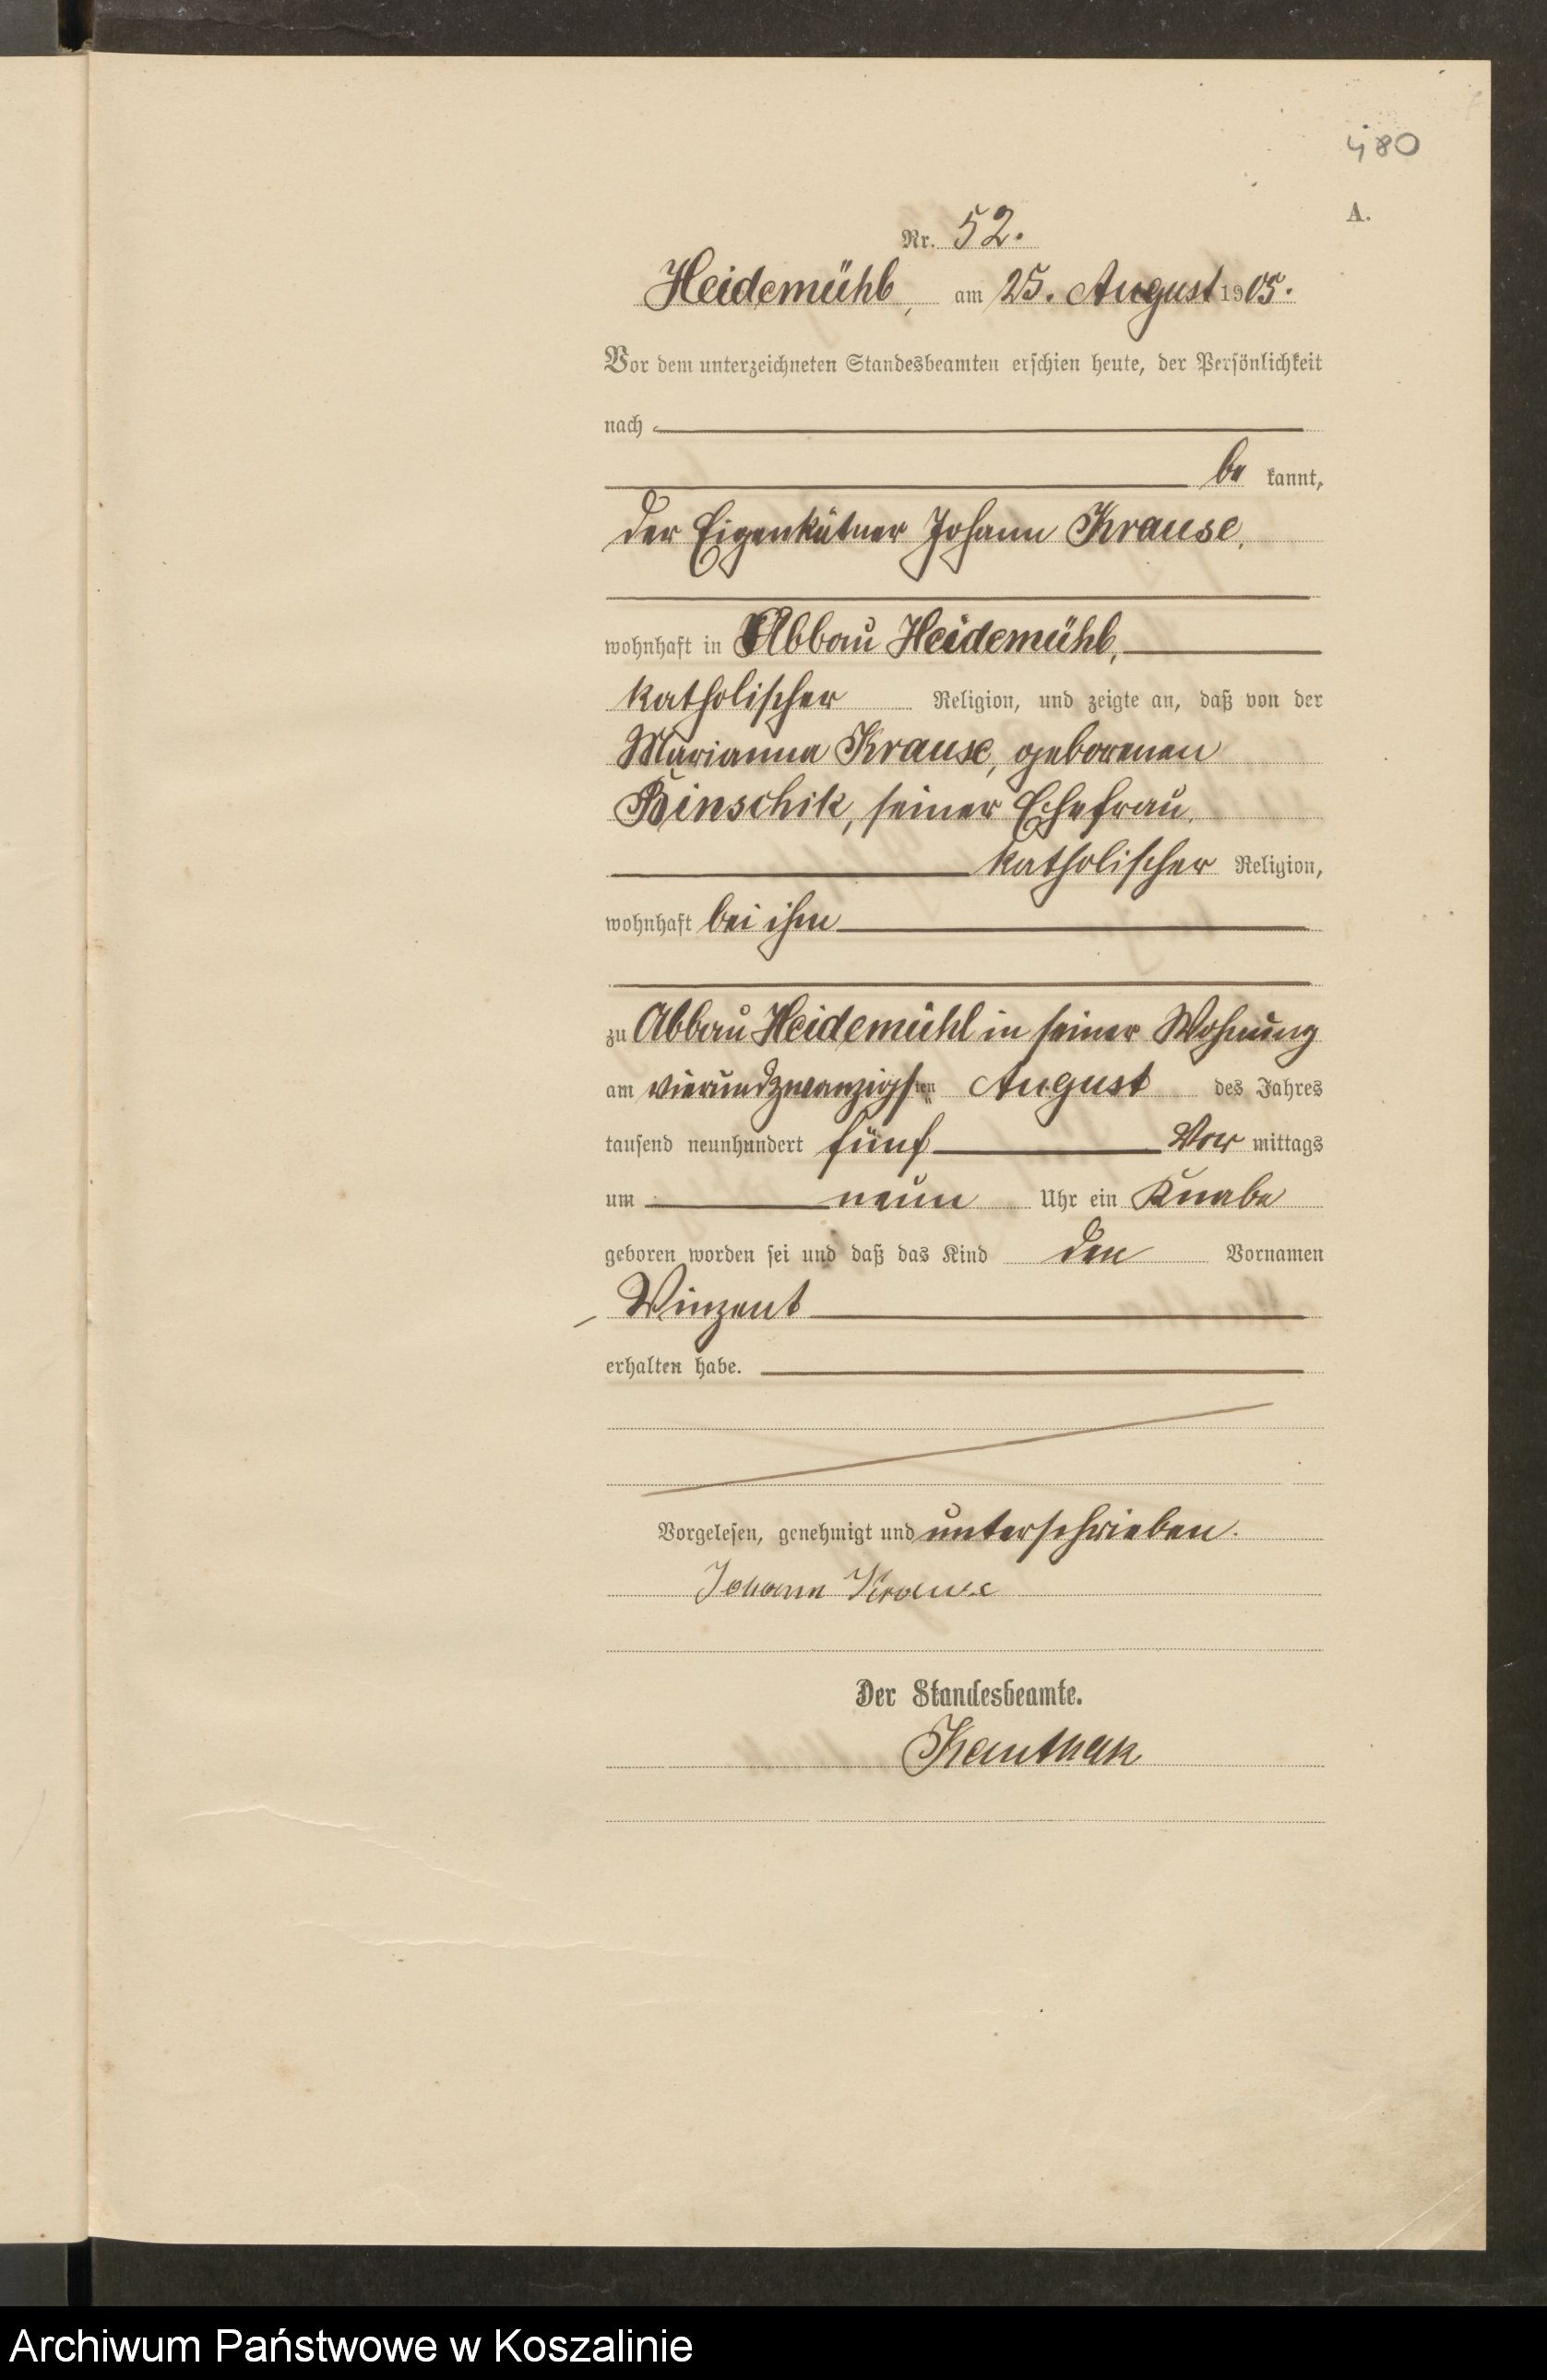 480
A.
Nr. 52.
Heidemühl, am 25. August 1905.
Vor dem unterzeichneten Standesbeamten erschien heute, der Persönlichkeit
nach
be kannt,
der Eigenkätner Johann Krause,
wohnhaft in Abbau Heidemühl,
katholischer Religion, und zeigte an, daß von der
Marianna Krause, geborenen
Binschik, seiner Ehefrau,
katholischer Religion,
wohnhaft bei ihm
zu Abbau Heidemühl in seiner Wohnung
am vierundzwanzigsten August des Jahres
tausend neunhundert fünf Vor mittags
um neun Uhr ein Knabe
geboren worden sei und daß das Kind den Vornamen
Vinzent
erhalten habe.
Vorgelesen, genehmigt und unterschrieben.
Johann Krause
Der Standesbeamte.
Kanthak
Archiwum Państwowe w Koszalinie